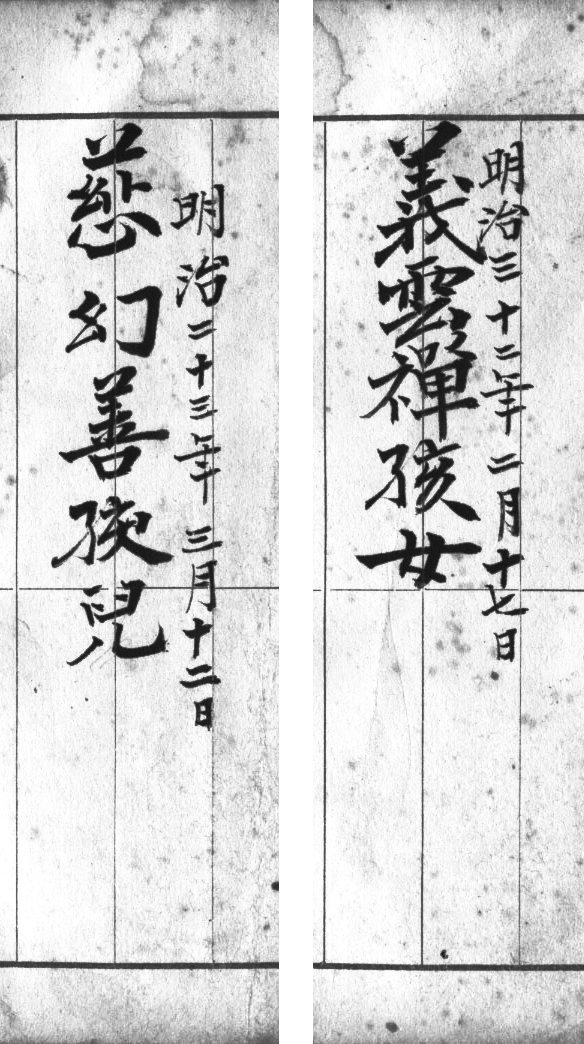 明治三十二年二月十七日
義雲禅孩女
明治二十三年三月十二日
慈幻善孩兒